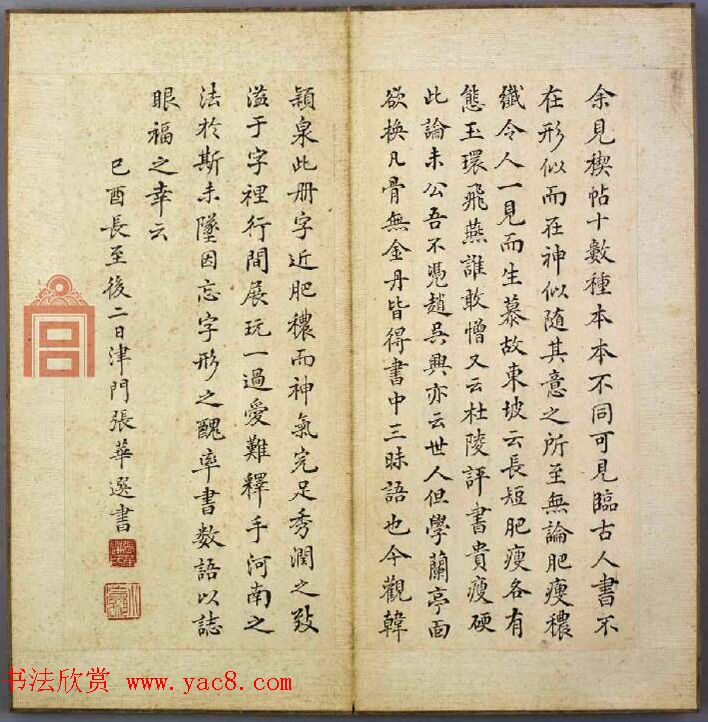 余見禊帖十數種本本不同可見臨古人書不
在形似而在神似隨其意之所至無論肥瘦穠
纖令人一見而生慕故東坡云長短肥瘦各有
態玉環飛燕誰敢憎又云杜陵評書貴瘦硬
此論未公吾不憑趙吳興亦云世人但學蘭亭面
欲換凡骨無金丹皆得書中三昧語也今觀韓
穎泉此册字近肥穠而神氣完足秀潤之致
溢于字裡行間展玩一過愛難釋手河南之
法於斯未墜因忘字形之醜率書數語以誌
眼福之幸云
己酉長至後二日津門張華選書
书法欣赏 www.yac8.com